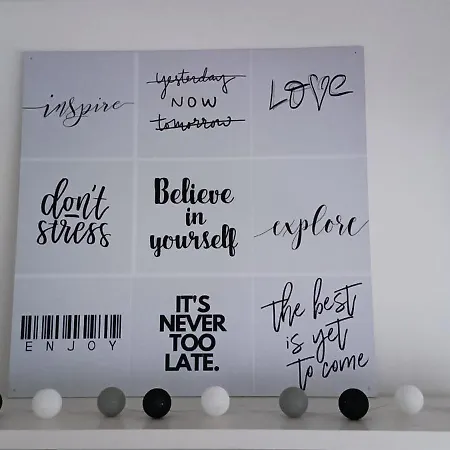 inspire
yesterday
NOW
tomorrow
LOVE
don't
stress
Believe
in
yourself
explore
ENJOY
IT'S
NEVER
TOO
LATE.
the best
is yet
to come